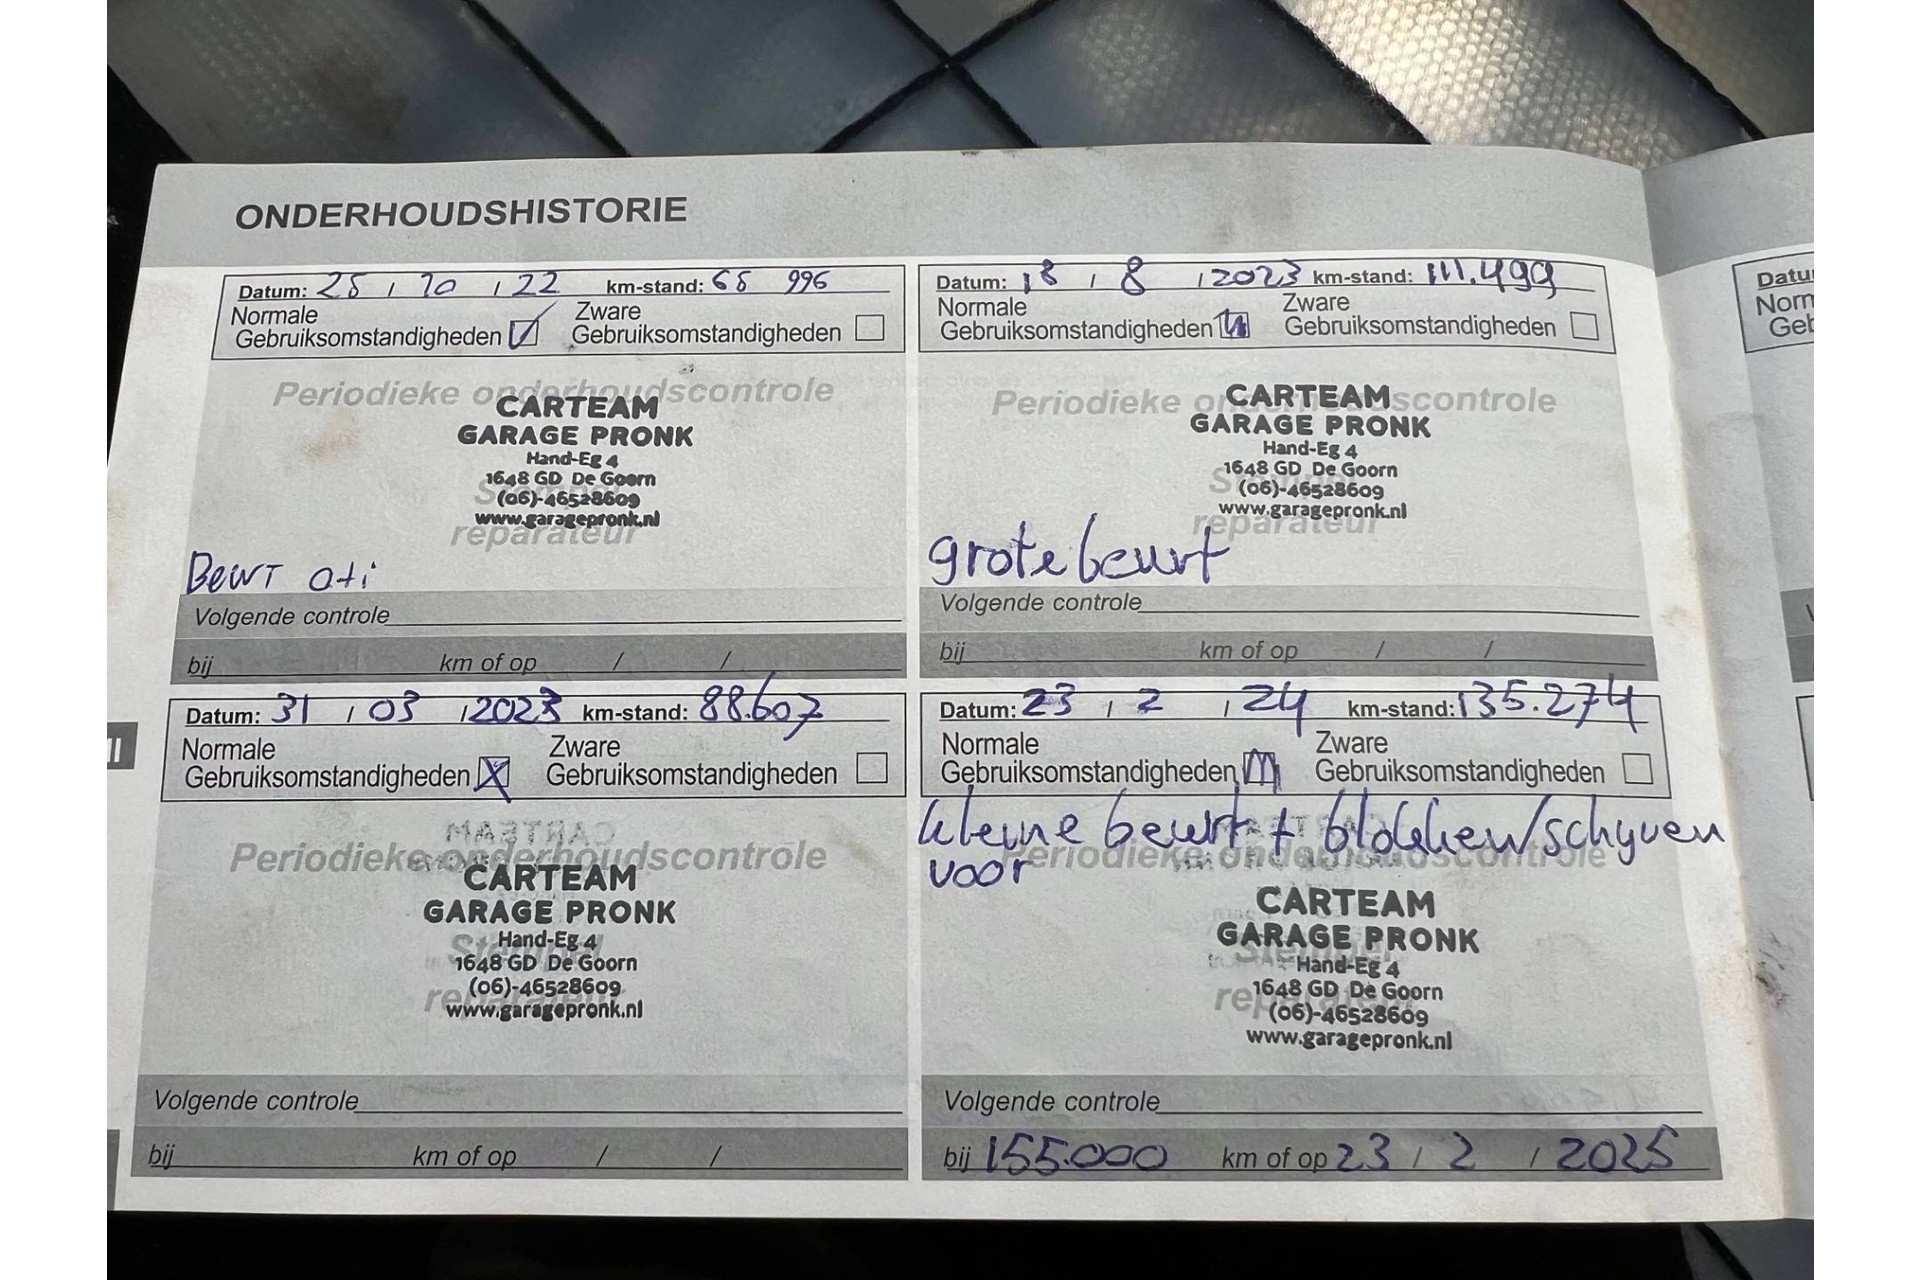 ONDERHOUDSHISTORIE
Datum: 25 / 10 / 22 km-stand: 65 996
Normale Gebruiksomstandigheden
Zware Gebruiksomstandigheden
Periodieke onderhoudscontrole
CARTEAM
GARAGE PRONK
Hand-Eg 4
1648 GD De Goorn
(06)-46528609
www.garagepronk.nl
Stempel
reparateur
Beurt
Volgende controle
bij km of op / /
Datum: 18 / 8 / 2023 km-stand: 111.499
Normale Gebruiksomstandigheden
Zware Gebruiksomstandigheden
Periodieke onderhoudscontrole
CARTEAM
GARAGE PRONK
Hand-Eg 4
1648 GD De Goorn
(06)-46528609
www.garagepronk.nl
reparateur
grote beurt
Volgende controle
bij km of op / /
Datum: 31 / 03 / 2023 km-stand: 88.607
Normale Gebruiksomstandigheden
Zware Gebruiksomstandigheden
Periodieke onderhoudscontrole
CARTEAM
GARAGE PRONK
Hand-Eg 4
1648 GD De Goorn
(06)-46528609
www.garagepronk.nl
Stempel
reparateur
Volgende controle
bij km of op / /
Datum: 23 / 2 / 24 km-stand: 135.274
Normale Gebruiksomstandigheden
Zware Gebruiksomstandigheden
kleine beurt + blokken/schyven
voor
Periodieke onderhoudscontrole
CARTEAM
GARAGE PRONK
Hand-Eg 4
1648 GD De Goorn
(06)-46528609
www.garagepronk.nl
reparateur
Volgende controle
bij 155.000 km of op 23 / 2 / 2025
Datu
Norm
Geb